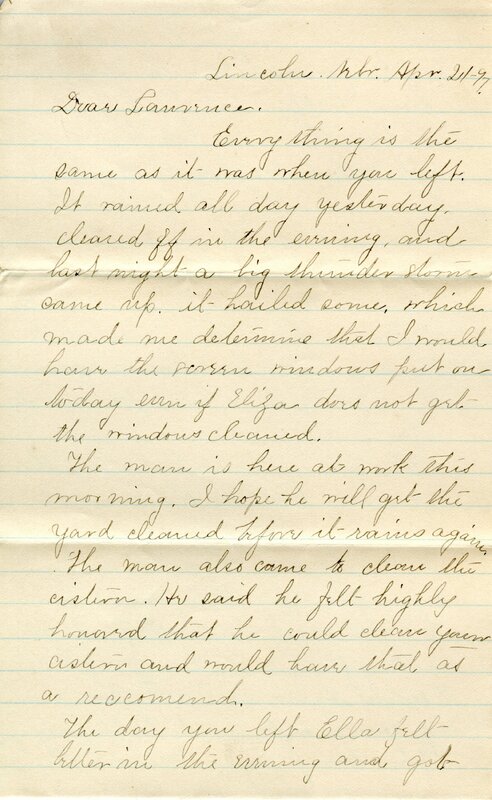 Lincoln. Nebr. Apr. 21-97
Dear Lawrence.
Everything is the
same as it was when you left.
It rained all day yesterday,
cleared off in the evening, and
last night a big thunder storm
came up. it hailed some, which
made me determine that I would
have the screen windows put on
today even if Eliza does not get
the windows cleaned.
The man is here at work this
morning. I hope he will get the
yard cleaned before it rains again
The man also came to clean the
cistern. He said he felt highly
honored that he could clean your
cistern and would have that as
a reccomend.
The day you left Ella felt
better in the evening and got